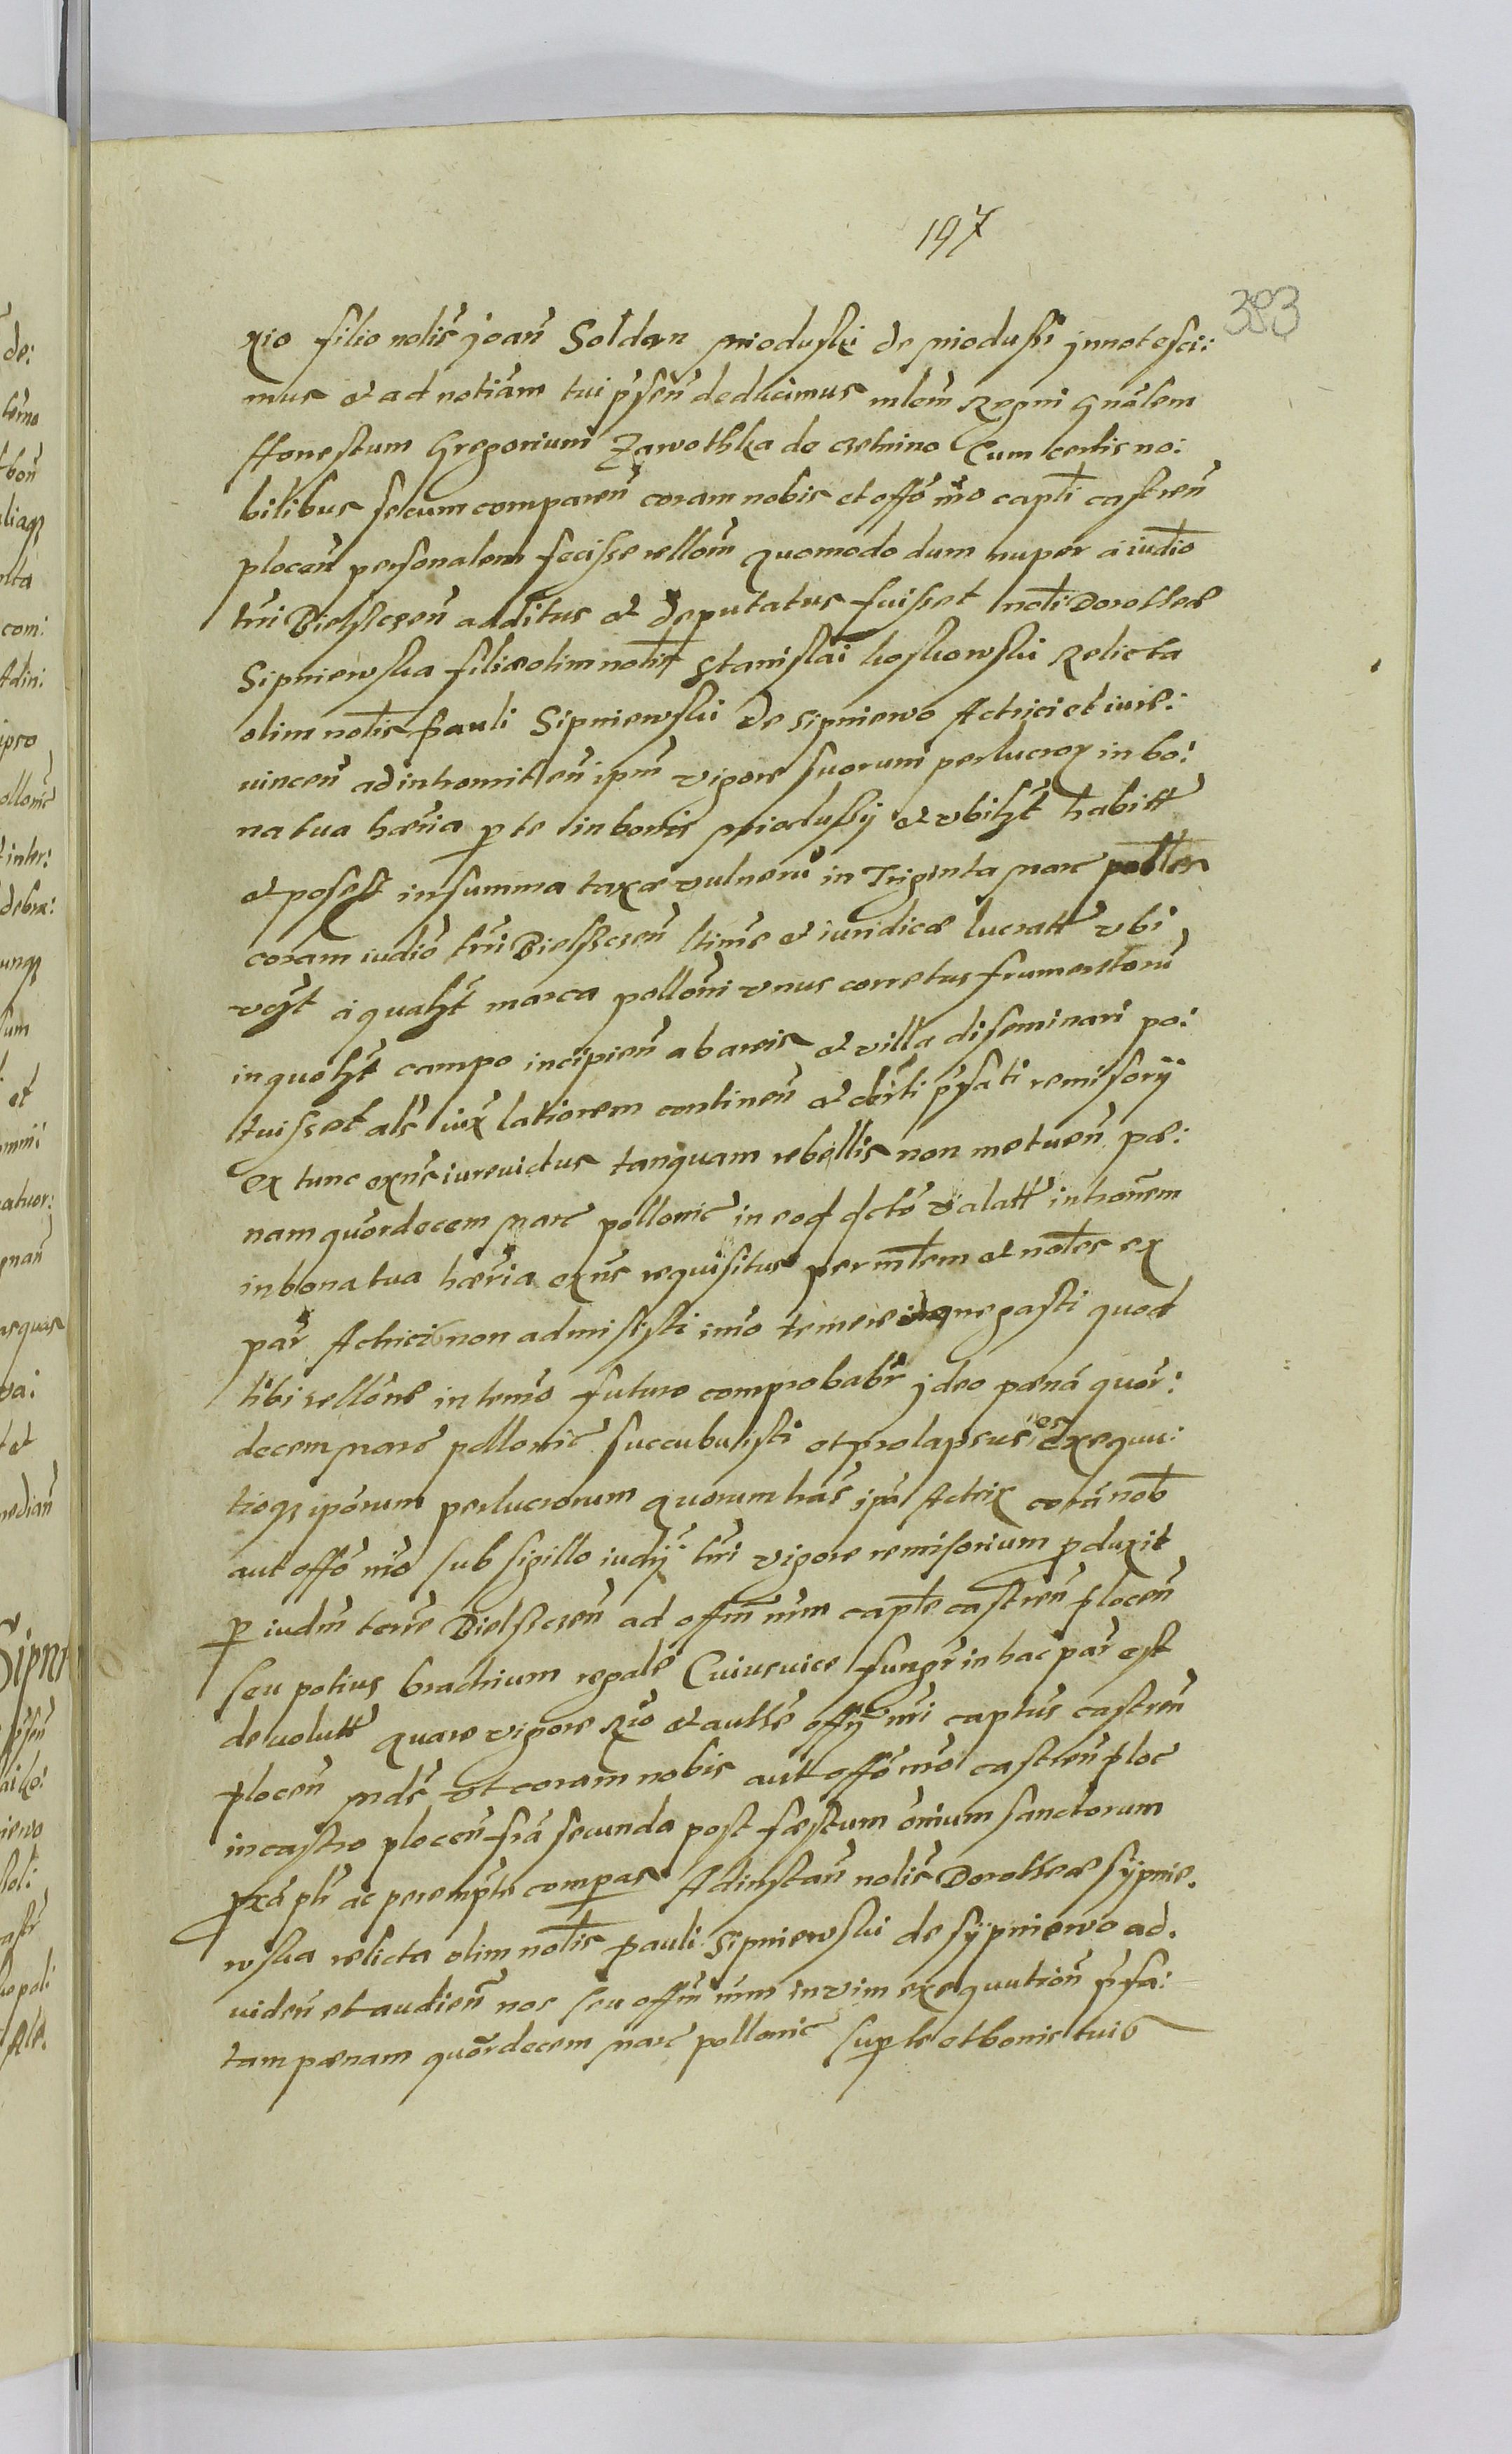 197
383
xio filio nolis Joan Soldan mioduski de miodussi innotesci:
mus et ad notiam tui psen deducimus mlem Regni gnalem
Honestum Gregorium Zawothka de czelmino Cum certis no:
bilibus secum comparen coram nobis et offo nro capli castren
plocen personalem fecisse rellom quomodo dum nuper a iudio
trri Bielsczen additus et deputatus fuisset noli Dorotheae
Sipniewska filiae olim nolis Stanislai koskowski Relicta
olim nolis Pauli Sipniewski de sipniewo Actrici et iure:
vincen ad intromitten ipm vigore suorum perlucror in bo:
na tua haeria p te in bonis miodussij et vbilzt habitt
et posest in summa taxae vulneru in Triginta marc pollcs
coram iudio trri Bielsczen ltime et iuridicae lucratt vbi
vczt a qualzt marca polloni vnus corretus frumentoru
in quolzt campo incipien ab areis et villa diseminari po:
tuisset als iux latiorem continen et drti psati remisorij
ex tunc exns iurevictus tanquam rebellis non metuen pae:
nam quordecem marc pollonic in eod dcto vialatt introem
in bona tua haeria exns requisitus per mlem et noles ex
par Actrici non admisisti imo temere denegasti quod
tibi rellone in temo futuro comprobabr ideo paena quor:
decem marc pollonic succubuisti et prolapsus es exequu:
tioqz iporum perlucrorum quorum has ipa Actrix cora nob
aut offo nro sub sigillo iudij trri vigore remisorium pduxit
p iudm terre Bielsczen ad offm nrm caple castren plocen
seu potius brachium regale Cuius vice fungr in hac par est
devolutt quare vigore Rio et autte offij nri captus castren
plocen mds vt coram nobis aut offo nro castren ploc
in castro plocen fra secunda post faestum omium sanctorum
pxa plr ac perempte compas Ad instan nolis Dorotheae sypnie.
wska relicta olim nolis pauli Sipniewski de sypniewo ad.
viden et audien nos seu offm nrm in vim exequution psa:
tam paenam quordecem marc pollonic sup te et bonis tuis